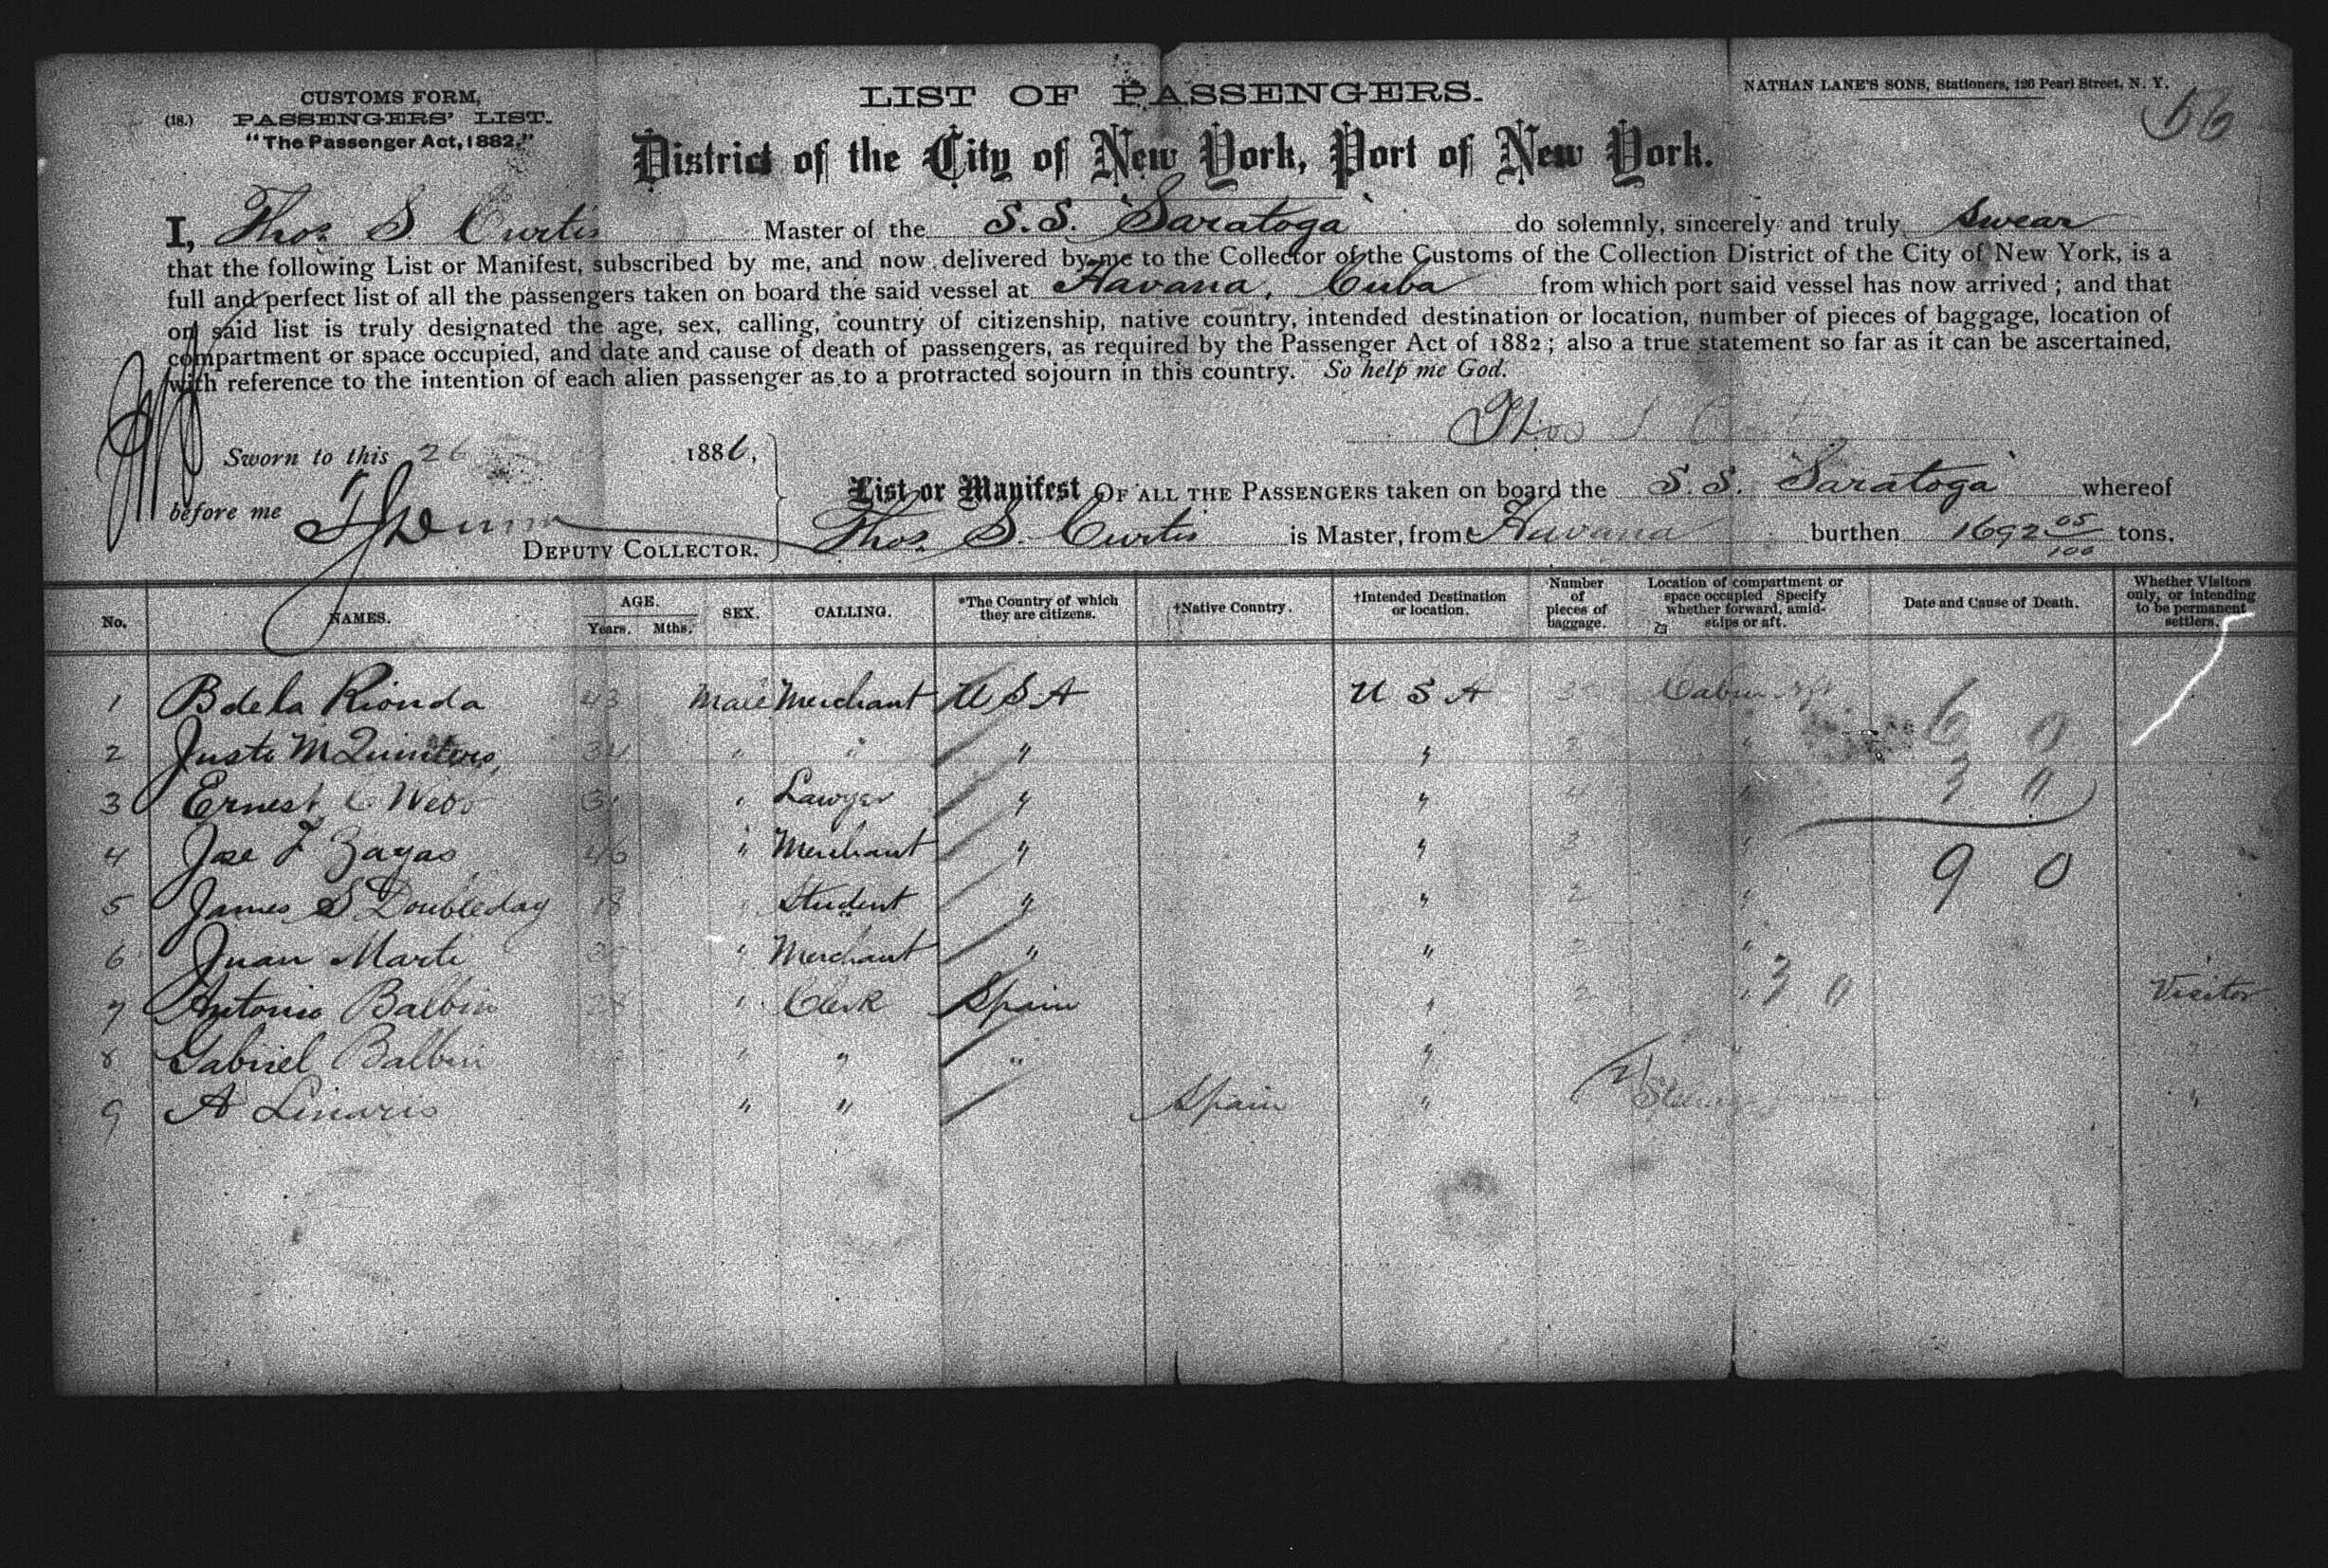 CUSTOMS FORM,
(18.) PASSENGERS' LIST.
"The Passenger Act, 1882."
LIST OF PASSENGERS.
NATHAN LANE'S SONS, Stationers, 126 Pearl Street, N. Y.
56
District of the City of New York, Port of New York.
I, Thos. S. Curtis Master of the S.S. "Saratoga" do solemnly, sincerely and truly swear
that the following List or Manifest, subscribed by me, and now delivered by me to the Collector of the Customs of the Collection District of the City of New York, is a
full and perfect list of all the passengers taken on board the said vessel at Havana, Cuba from which port said vessel has now arrived; and that
on said list is truly designated the age, sex, calling, country of citizenship, native country, intended destination or location, number of pieces of baggage, location of
compartment or space occupied, and date and cause of death of passengers, as required by the Passenger Act of 1882; also a true statement so far as it can be ascertained,
with reference to the intention of each alien passenger as to a protracted sojourn in this country. So help me God.
Thos S
Sworn to this 26 1886,
before me
DEPUTY COLLECTOR.
List or Manifest OF ALL THE PASSENGERS taken on board the S.S. "Saratoga" whereof
Thos. S. Curtis is Master, from Havana burthen 1692 05/100 tons.
No. NAMES. AGE. Years. Mths. SEX. CALLING. *The Country of which they are citizens. †Native Country. †Intended Destination or location. Number of pieces of baggage. Location of compartment or space occupied Specify whether forward, amidships or aft. Date and Cause of Death. Whether Visitors only, or intending to be permanent settlers.
1 B de la Rionda 43 Male Merchant U S A U S A 3 Cabin
2 Justo M Quintero " " " " "
3 Ernest C Webb " Lawyer " " "
4 Jose F Zayas 46 " Merchant " " 3 "
5 James S Doubleday 18 " Student " " 2 "
6 Juan Marti " Merchant " " 2 "
7 Antonio Balbin " Clerk Spain " 2 " Visitor
8 Gabriel Balbin " " " " "
9 A Linaris " " Spain " "
6 0
3 0
9 0
3 0